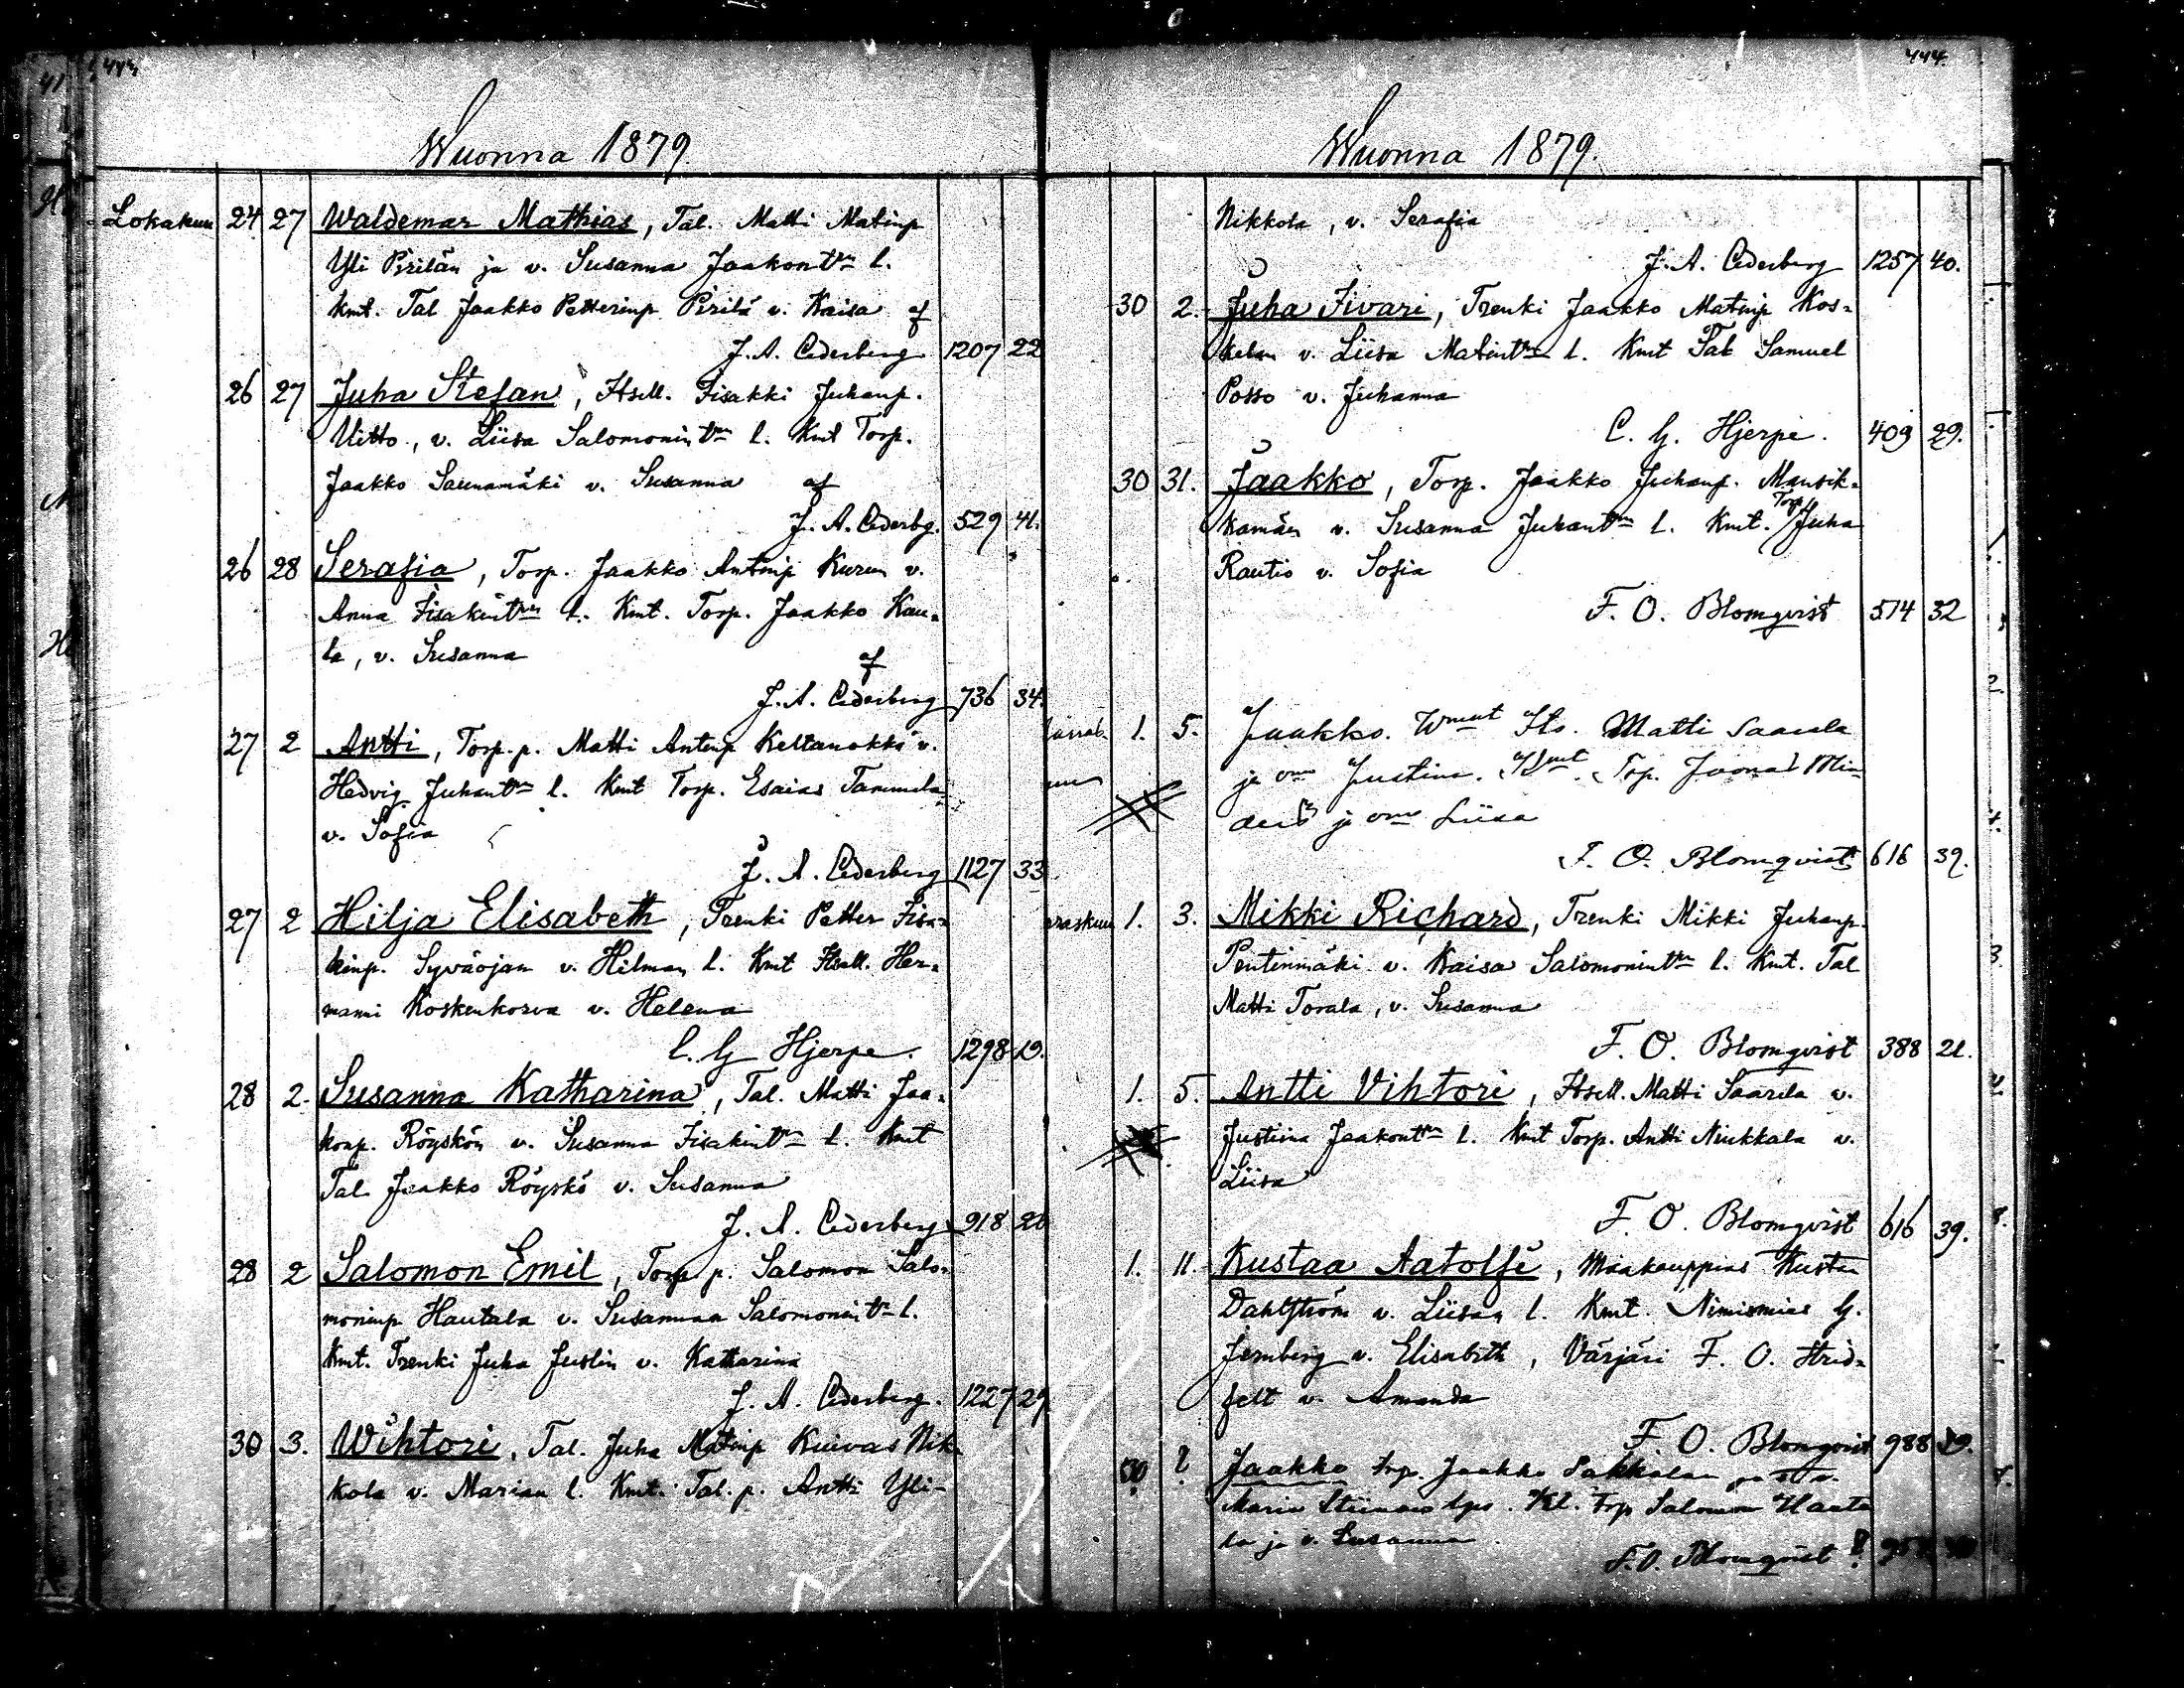 443
Wuonna 1879
Lokakuu 24 27 Waldemar Mathias, Tal. Matti Matinp
Yli Pirilän ja v. Susanna Jaakontr l.
Kmt. Tal Jaakko Petterinp Pirilä v. Kaisa af
J. A. Cederberg 1207 22
26 27 Juha Stefan, Itsell. Iisakki Juhanp.
Uitto, v. Liisa Salomonintr l. Kmt Torp.
Jaakko Saunamäki v. Susanna af
J. A. Cederbg. 529 41.
26 28 Serafia, Torp. Jaakko Antinp Kurun v.
Anna Iisakintr l. Kmt. Torp. Jaakko Kau-
la, v. Susanna af
J. A. Cederberg 736 34.
27 2 Antti, Torp. p. Matti Antinp Keltanokka v.
Hedvig Juhantr l. Kmt Torp. Esaias Tammela
v. Sofia
J. A. Cederberg 1127 33
27 2 Hilja Elisabeth, Trenki Petter Iisa-
kinp. Syväojan v. Hilman l. Kmt Itsell. Her-
manni Koskenkorva v. Helena
C. G Hjerpe. 1298 19.
28 2. Susanna Katharina, Tal. Matti Jaa-
konp. Röyskön v. Susanna Iisakintr l. Kmt
Tal. Jaakko Röyskö v. Susanna
J. A. Cederberg 918 20
28 2 Salomon Emil, Torp p. Salomon Salo-
moninp Hautala v. Susannan Salomonintr l.
Kmt. Trenki Juha Juslin v. Katharina
J. A. Cederberg. 1227 29
30 3. Wihtori, Tal. Juha Matinp Kuivas Nik-
kola v. Marian l. Kmt. Tal. p. Antti Yli-
444.
Wuonna 1879.
Nikkola, v. Serafia
J. A. Cederberg 1257 40.
30 2. Juha Iivari, Trenki Jaakko Matinp Kos-
kelan v. Liisa Matintr l. Kmt Tal. Samuel
Posso v. Juhanna
C. G. Hjerpe. 409 29.
30 31. Jaakko, Torp. Jaakko Juhanp. Mansik-
kamäen v. Susanna Juhantr l. Kmt. Torp Juha
Rautio v. Sofia
F. O. Blomqvist 514 32
1. 5. Jaakko. Wmmt Its. Matti Saarela
ja vmo Justina. Kmt. Trp. Joonas Min
ders ja vmo Liisa
F. O. Blomqvist 616 39.
raskuu 1. 3. Mikki Richard, Trenki Mikki Juhanp.
Pentinmäki v. Kaisa Salomonintr l. Kmt. Tal
Matti Torala, v. Susanna
F. O. Blomqvist 388 21.
1. 5. Antti Vihtori, Itsell. Matti Saarela v.
Justiina Jaakontr l. Kmt Torp. Antti Niukkala v.
Liisa
F. O. Blomqvist 616 39.
1. 11. Kustaa Aatolfi, Maakauppias Kustaa
Dahlström v. Liisan l. Kmt. Nimismies G.
Jernberg v. Elisabeth, Värjäri F. O. Strid-
felt v. Amanda
F. O. Blomqvist 988 39.
? Jaakko trp. Jaakko Pakkalan ja v.
Maria Stiinans lps. Kl. Trp Salomon Hauta
la ja v. Susanna
F. O. Blomqvist